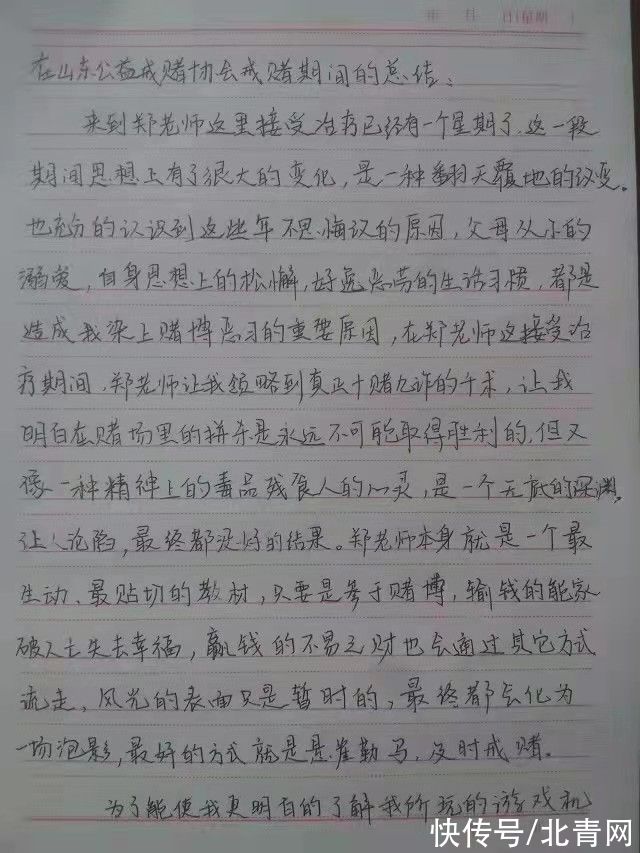 年 月 日(星期 )
在山东公益戒赌协会戒赌期间的总结：
来到郑老师这里接受治疗已经有一个星期了，这一段
期间思想上有了很大的变化，是一种翻天覆地的改变。
也充分的认识到这些年不思悔改的原因，父母从小的
溺爱，自身思想上的松懈，好逸恶劳的生活习惯，都是
造成我染上赌博恶习的重要原因，在郑老师这接受治
疗期间，郑老师让我领略到真正十赌九诈的千术，让我
明白在赌场里的拼杀是永远不可能取得胜利的，但又
像一种精神上的毒品残食人的心灵，是一个无底的深渊，
让人沦陷，最终都没好的结果。郑老师本身就是一个最
生动、最贴切的教材，只要是参于赌博，输钱的能家
破人亡失去幸福，赢钱的不易之财也会通过其它方式
流走，风光的表面只是暂时的，最终都会化为
一场泡影，最好的方式就是悬崖勒马，及时戒赌。
为了能使我更明白的了解我所玩的游戏机
快传号/北青网